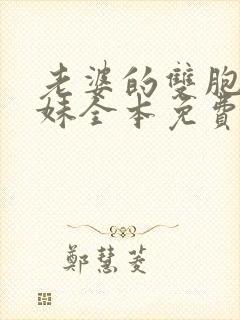 老婆的雙胞
妹全本免費
鄭慧菱